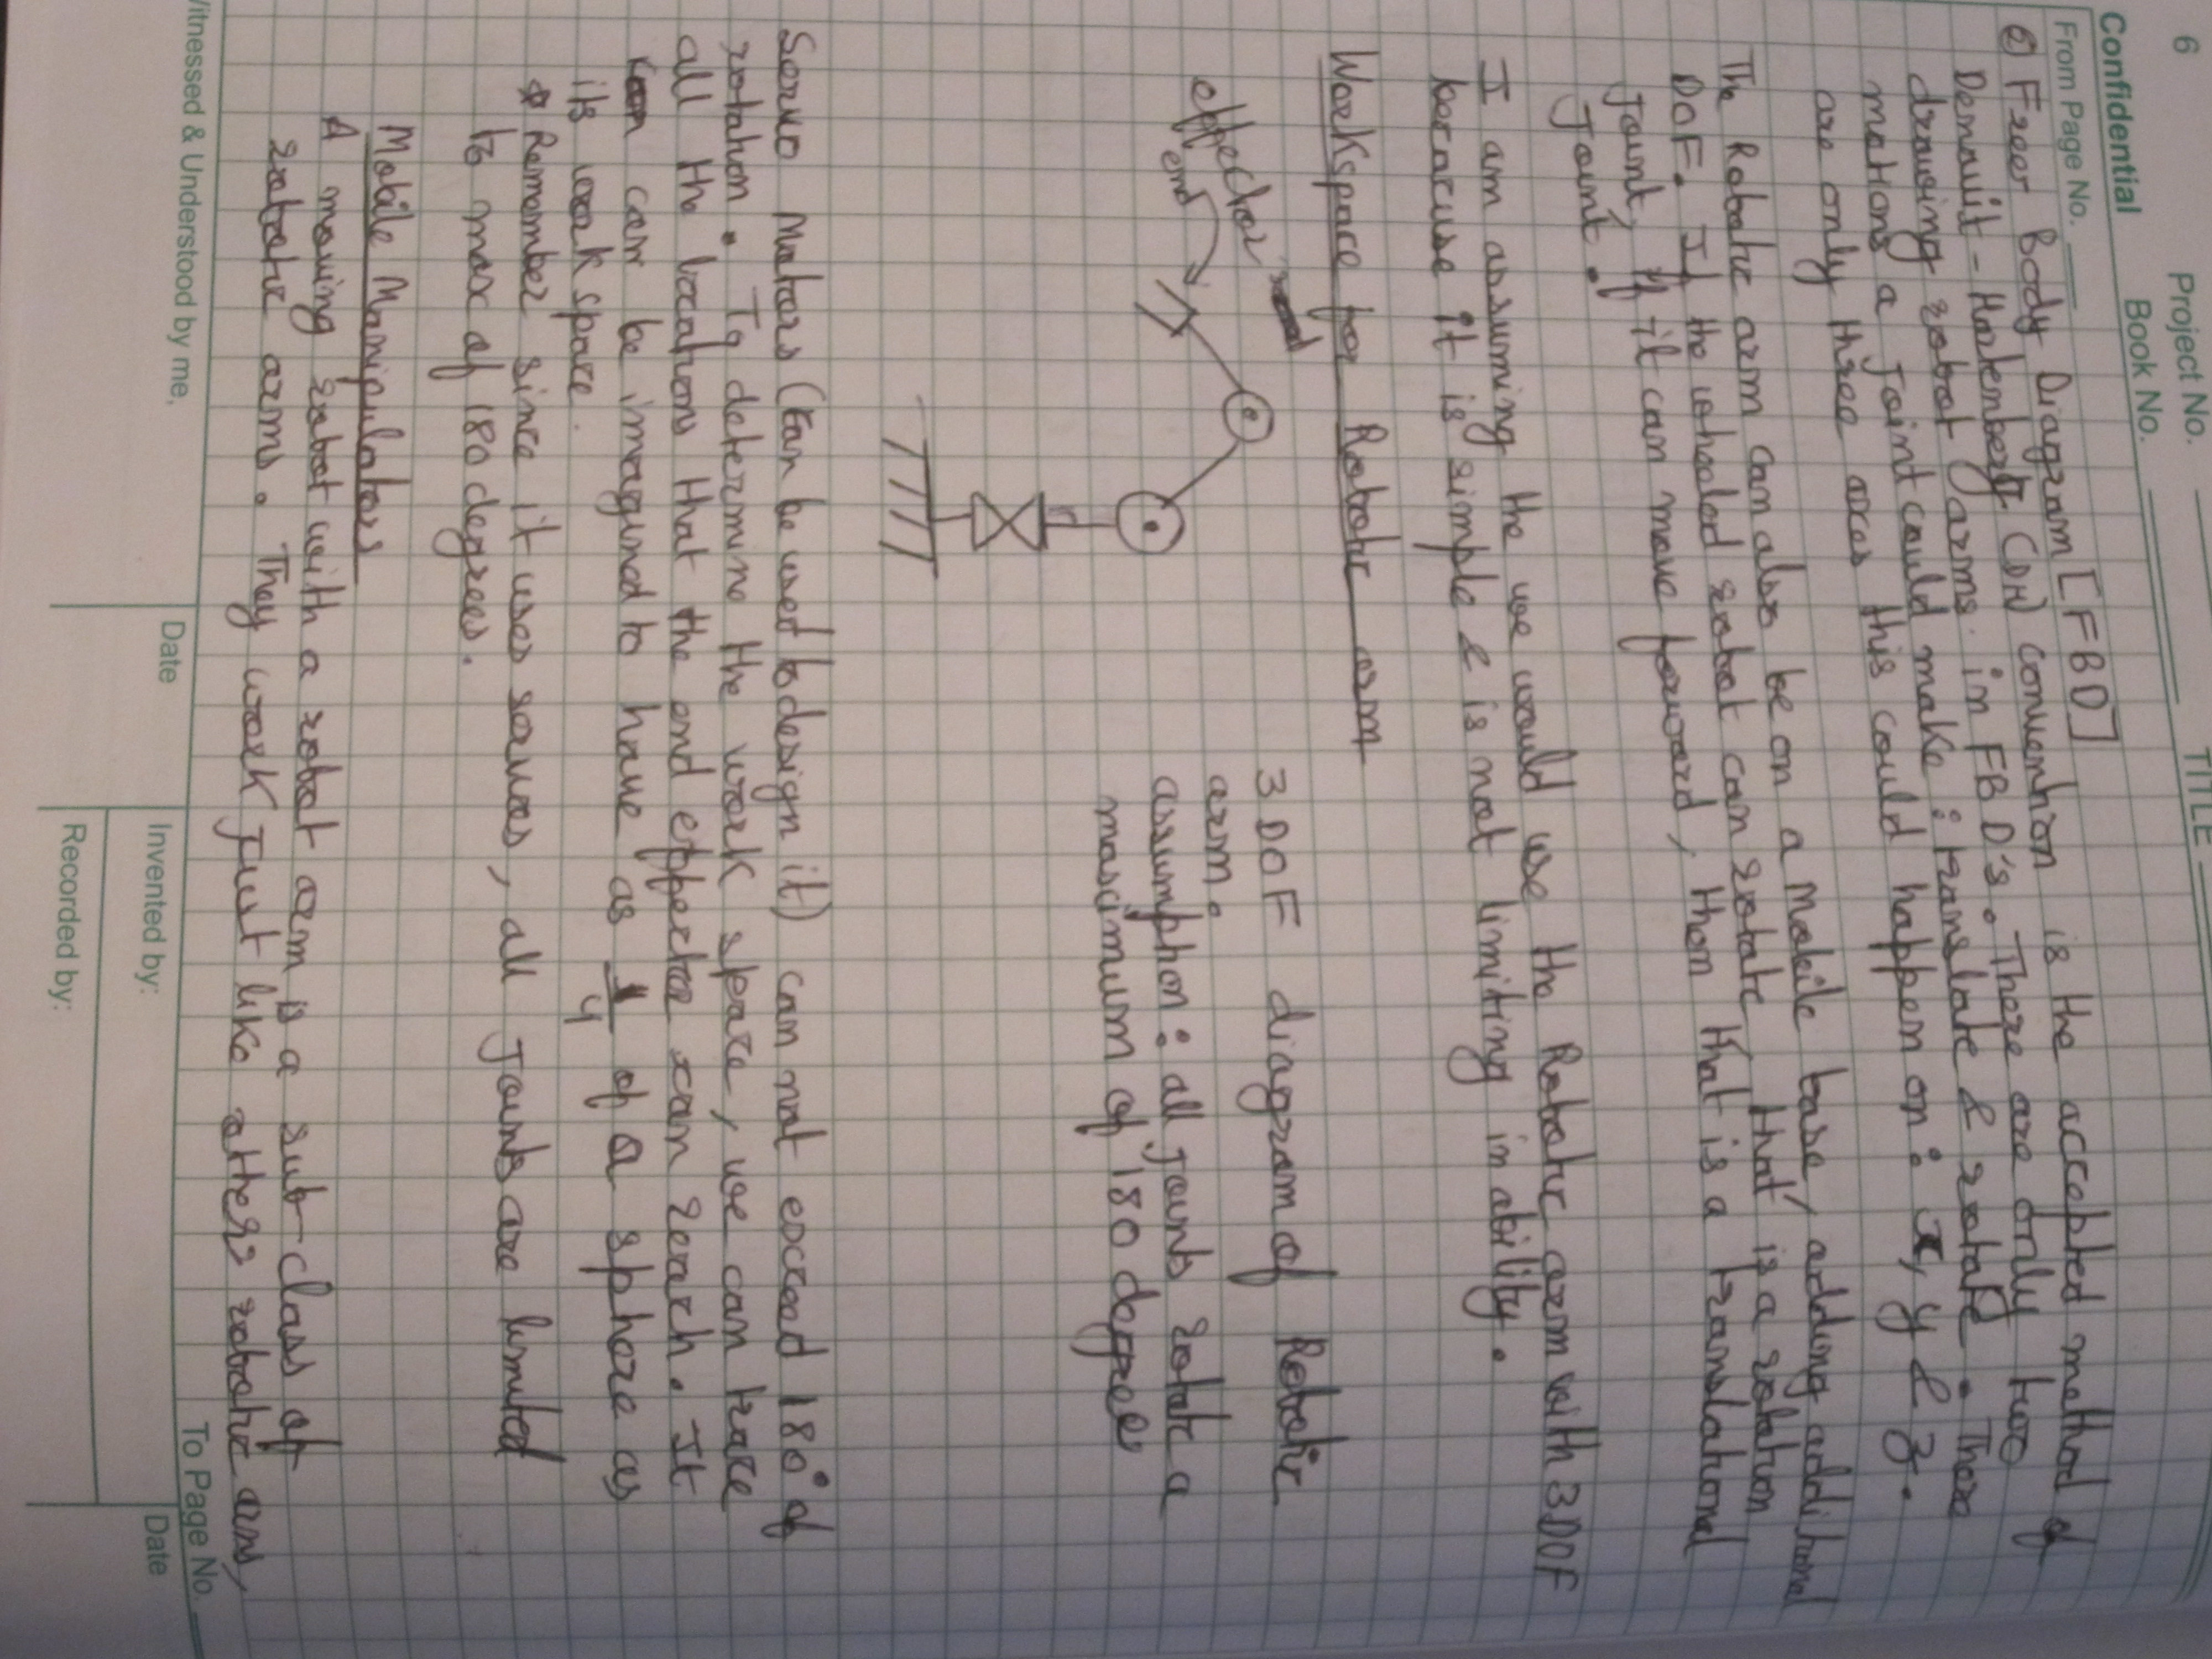 6
Project No.
Book No.
TITLE
Confidential
From Page No.
e) Freer Body Diagram [FBD]
Denauit-Hartenberg (DH) convention is the accepted method of
drawing robot arms in FBD's. There are only two
motions a Joint could make: translate & rotate. There
are only three axes this could happen on: x, y & z.
The Robotic arm can also be on a Mobile base, adding additional
DOF. If the wheeled robot can rotate that is a rotation
Joint, if it can move forward, then that is a translational
Joint.
I am assuming the we would use the Robotic arm with 3DOF
because it is simple & is not limiting in ability.
Workspace for Robotic arm
effector
end
3 DOF diagram of Robotic
arm.
assumption: all Joints rotate a
maximum of 180 degrees
Servo Motors (can be used to design it) can not exceed 180° of
rotation. To determine the work space, we can trace
all the locations that the end effector can reach. It
can be imagined to have as 1/4 of a sphere as
its work space.
* Remember since it uses servos, all Joints are limited
to max of 180 degrees.
Mobile Manipulators
A moving robot with a robot arm is a sub-class of
robotic arms. They work Just like other robotic arms,
Witnessed & Understood by me,
Date
Invented by:
Recorded by:
Date
To Page No.